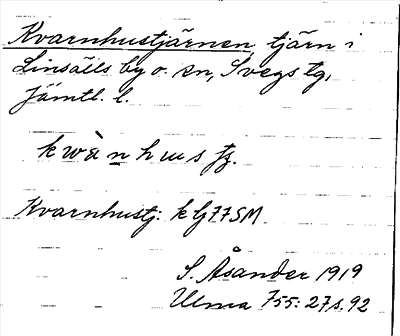 Kvarnhustjärnen, tjärn i
Linsälls by o. sn, Svegs tg,
Jämtl. l.
kwànhus
Kvarnhustj:
S. Åsander 1919
Ulma 755: 27 s. 92